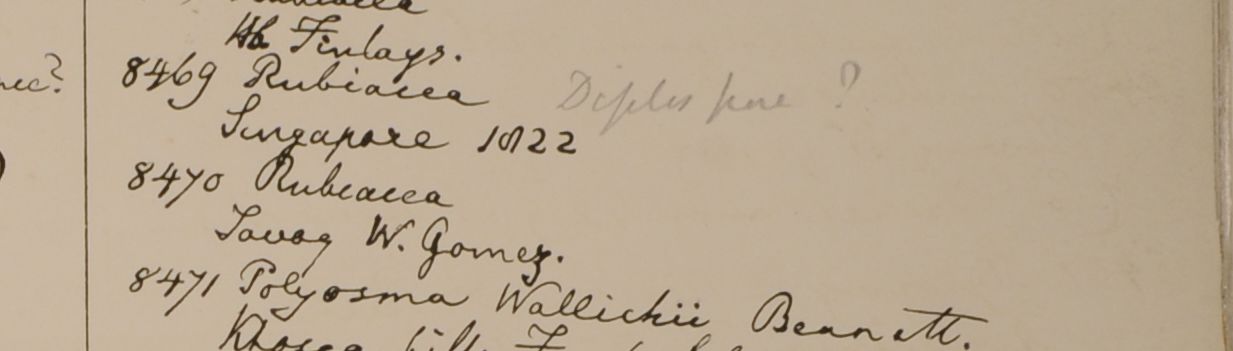 Hb Finlays.
nec?
8469 Rubiacea Diplospore ?
Singapore 1822
8470 Rubiacea
Tavoy W. Gomez.
8471 Polyosma Wallichii Bennett.
Khosea hills